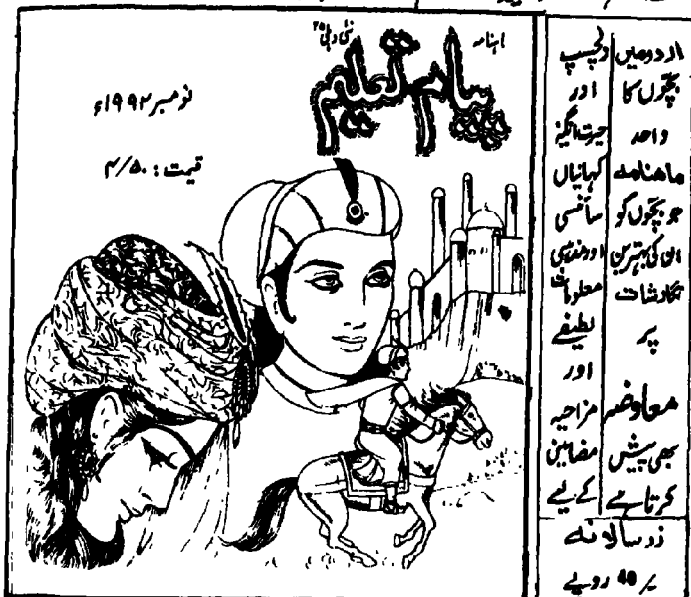 ماہنامہ نئی دہلی ۲۵
پیام تعلیم
نومبر ۱۹۹۲ء
قیمت: ۴/۵۰
اردو میں
بچّوں کا
واحد
ماھنامہ
جو بچّوں کو
ان کی بہترین
نگارشات
پر
معاوضہ
بھی پیش
کرتا ہے
دلچسپ
اور
حیرت انگیز
کہانیاں
سائنسی
اور مذہبی
معلومات
لطیفے
اور
مزاحیہ
مضامین
کے لیے
زر سالانہ
/40 روپے